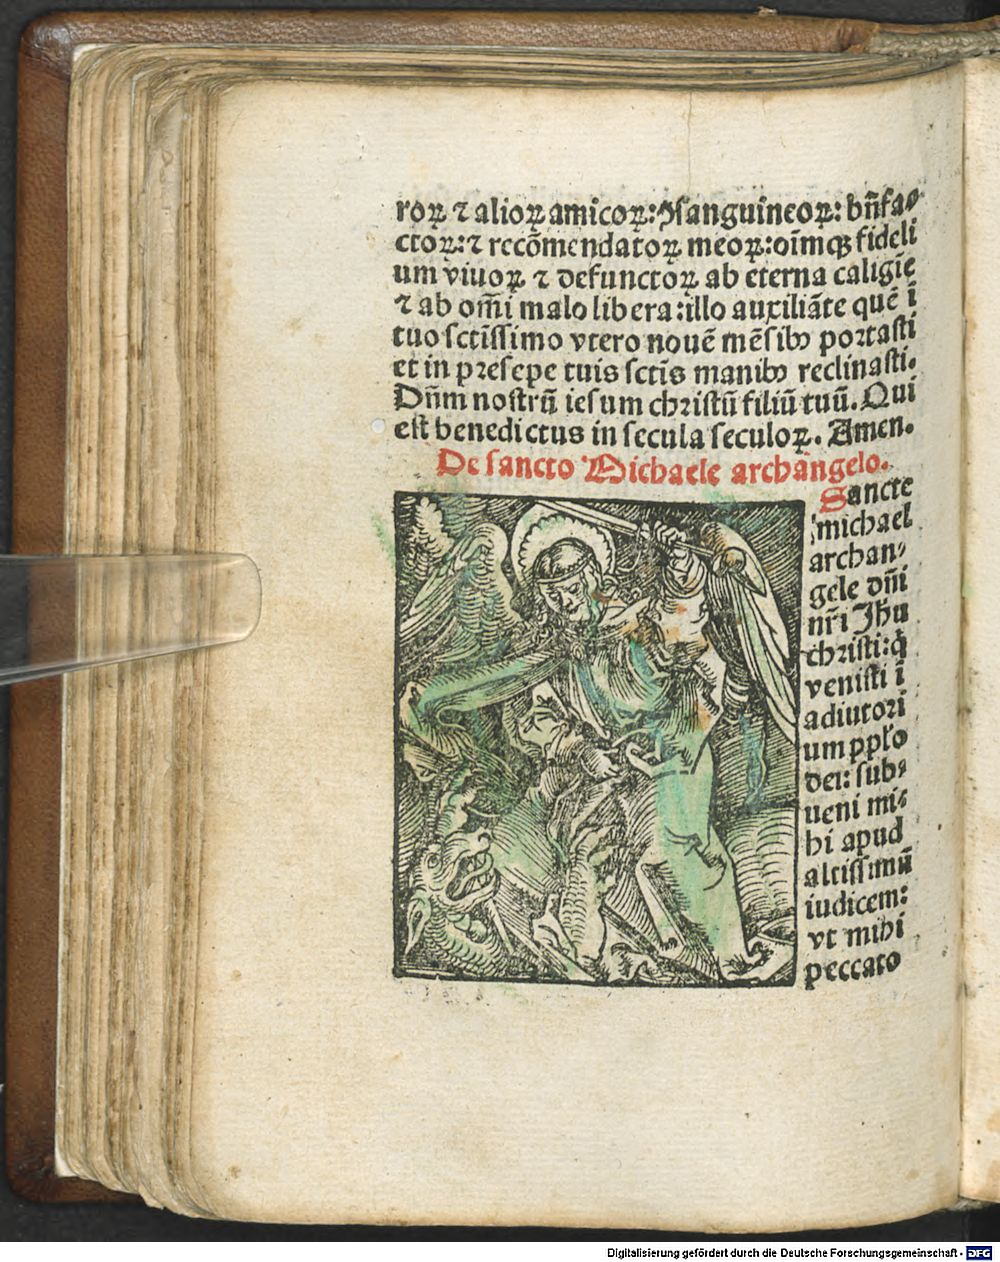 roꝝ ⁊ alioꝝ amicoꝝ: ꝯsanguineoꝝ: bn̄fa⸗
ctoꝝ: ⁊ recōmendatoꝝ meoꝝ: oīmqꝫ fideli
um viuoꝝ ⁊ defunctoꝝ ab eterna caligīe
⁊ ab om̄i malo libera: illo auxiliāte quē ī
tuo sctīssimo vtero nouē mēsibꝰ portasti
et in presepe tuis sctīs manibꝰ reclinasti.
Dn̄m nostrū iesum christū filiū tuū. Qui
est benedictus in secula seculoꝝ. Amen.
De sancto Michaele archangelo.
Sancte
michael
archan⸗
gele dn̄i
nr̄i Jhu
christi: q̇
venisti ī
adiutori
um pplo
dei: sub⸗
ueni mi⸗
hi apud
altissimū
iudicem:
vt mihi
peccato
Digitalisierung gefördert durch die Deutsche Forschungsgemeinschaft - DFG